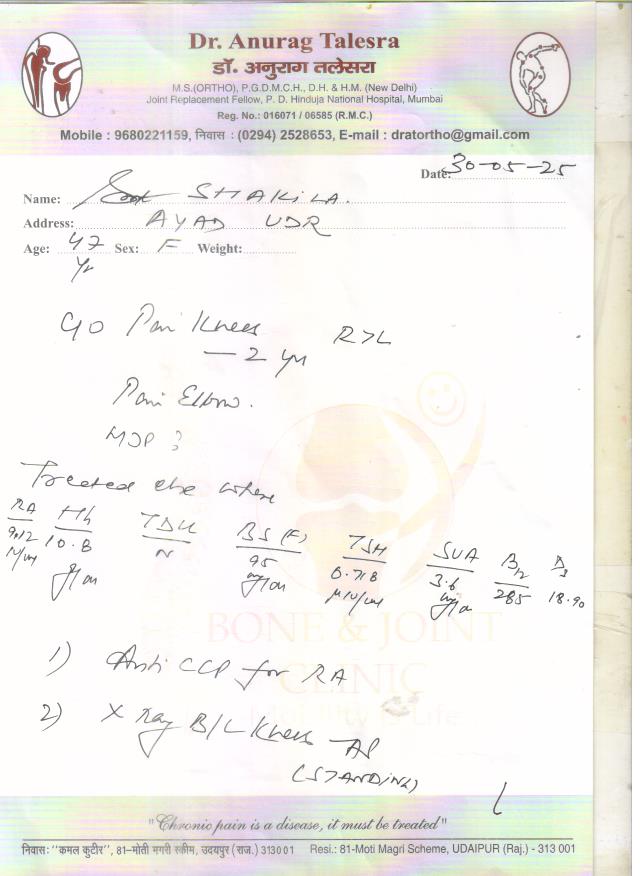 Dr. Anurag Talesra
डॉ. अनुराग तलेसरा
M.S.(ORTHO), P.G.D.M.CH., D.H. & H.M. (New Delhi)
Joint Replacement Fellow, P. D. Hinduja National Hospital, Mumbai
Reg. No.: 016071 / 06585 (R.M.C.)
Mobile : 9680221159, निवास : (0294) 2528653, E-mail : dratortho@gmail.com
Date: 30-05-25
Name: SHAKILA.
Address: AYAD UDR
Age: 47 Yr Sex: F Weight:
C/O Pain Knees R>L
— 2 yrs
Pain Elbow.
Treated else where
RA Hb BS (F) TSH SUA B12 D3
9.12 10.8 N 95 0.718 3.6 285 18.90
BONE & JOINT
CLINIC
1) Anti CCP for RA
2) X Ray B/L Knees AP
(STANDING)
"Chronic pain is a disease, it must be treated"
निवास: "कमल कुटीर", 81-मोती मगरी स्कीम, उदयपुर (राज.) 313001 Resi.: 81-Moti Magri Scheme, UDAIPUR (Raj.) - 313 001